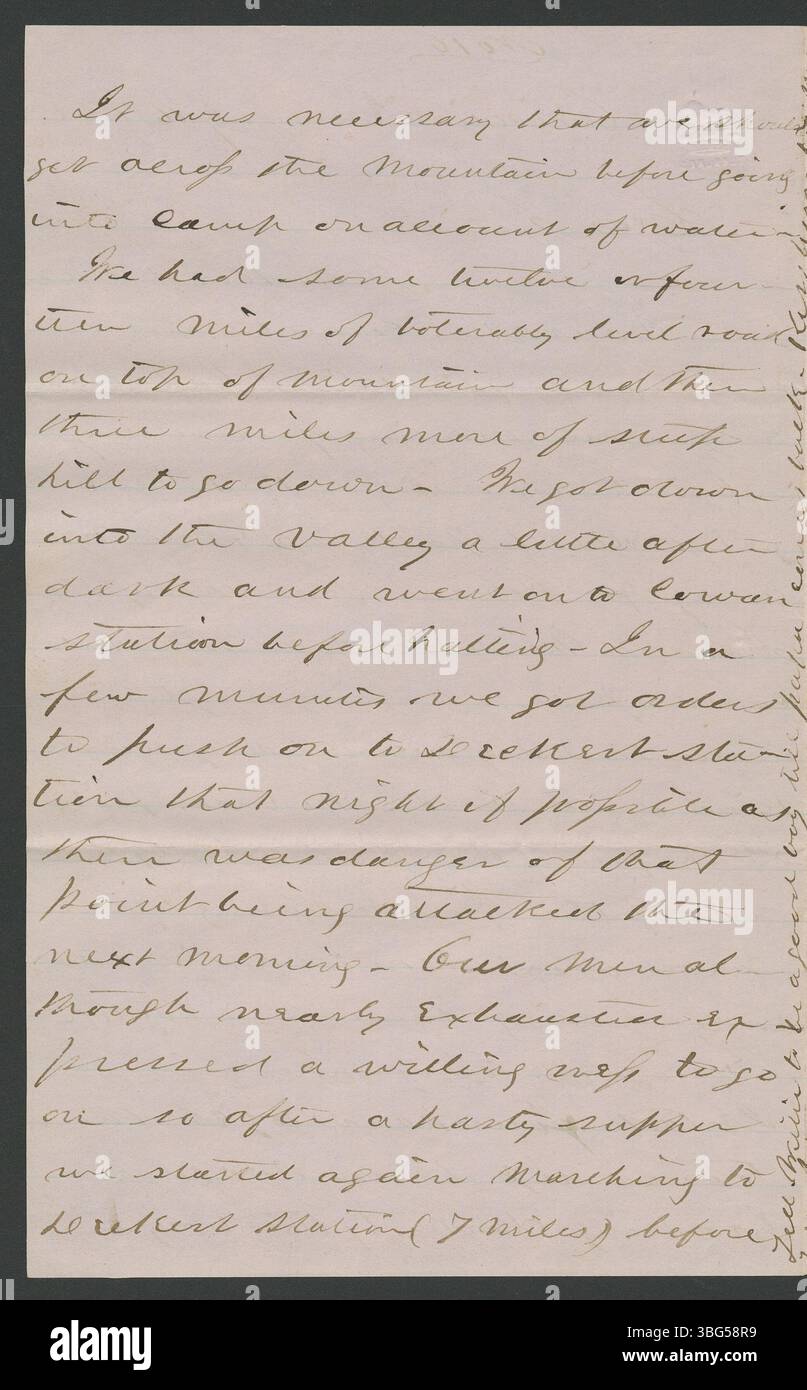 It was necessary that we should
get across the mountain before going
into camp on account of water -
We had some twelve or four-
teen miles of tolerably level road
on top of mountain and then
three miles more of steep
hill to go down - We got down
into the valley a little after
dark and went on to Cowan
station before halting - In a
few minutes we got orders
to push on to Deckert sta-
tion that night if possible as
there was danger of that
point being attacked the
next morning - Our men al-
though nearly exhausted ex
pressed a willing ness to go
on so after a hasty supper
we started again marching to
Deckert Station (7 miles) before
Tell Willie to be a good boy till papa comes back -
alamy
Image ID: 3BG58R9
www.alamy.com